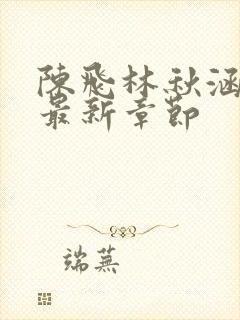 陳飛林秋涵
最新章節
端蕪